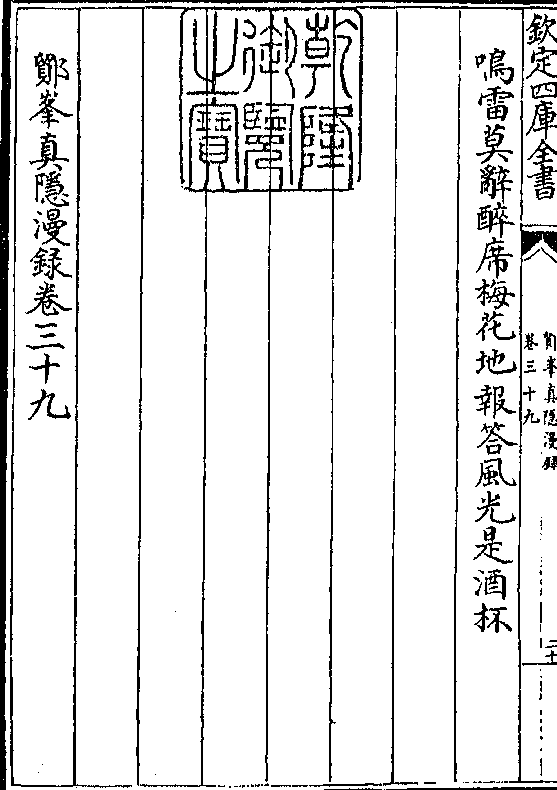 欽定四庫全書
鄮峯真隱漫録
卷三十九
二十
鳴雷莫辭醉席梅花地報答風光是酒杯
乾隆御覽之寶
鄮峯真隱漫録卷三十九